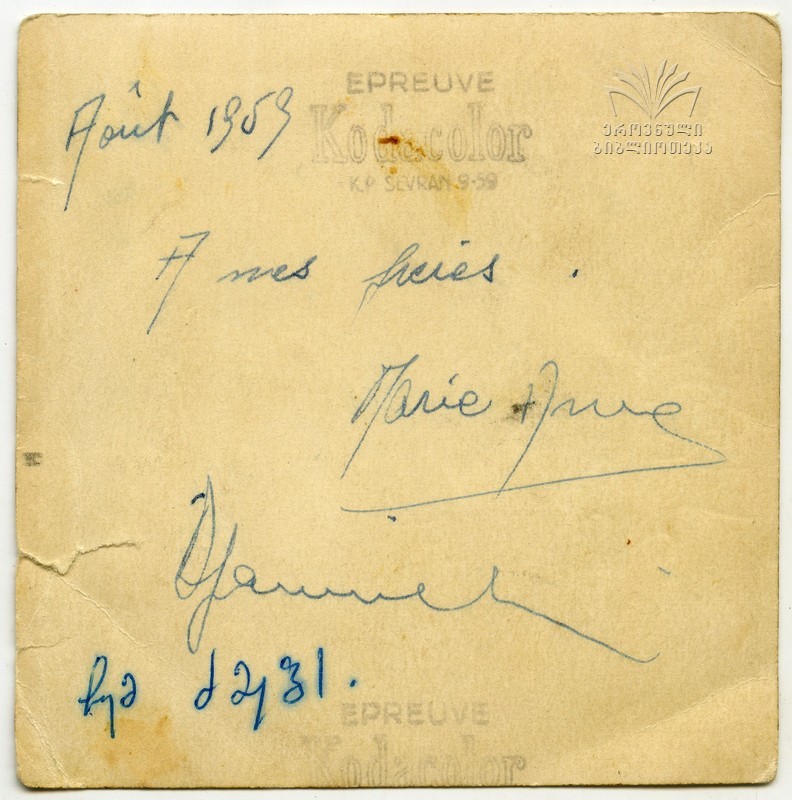 EPREUVE
Kodacolor
K.P SEVRAN 9-59
ეროვნული
ბიბლიოთეკა
Août 1959
A mes frères.
Marie Anne
ჩემ ძმებს.
EPREUVE
Kodacolor